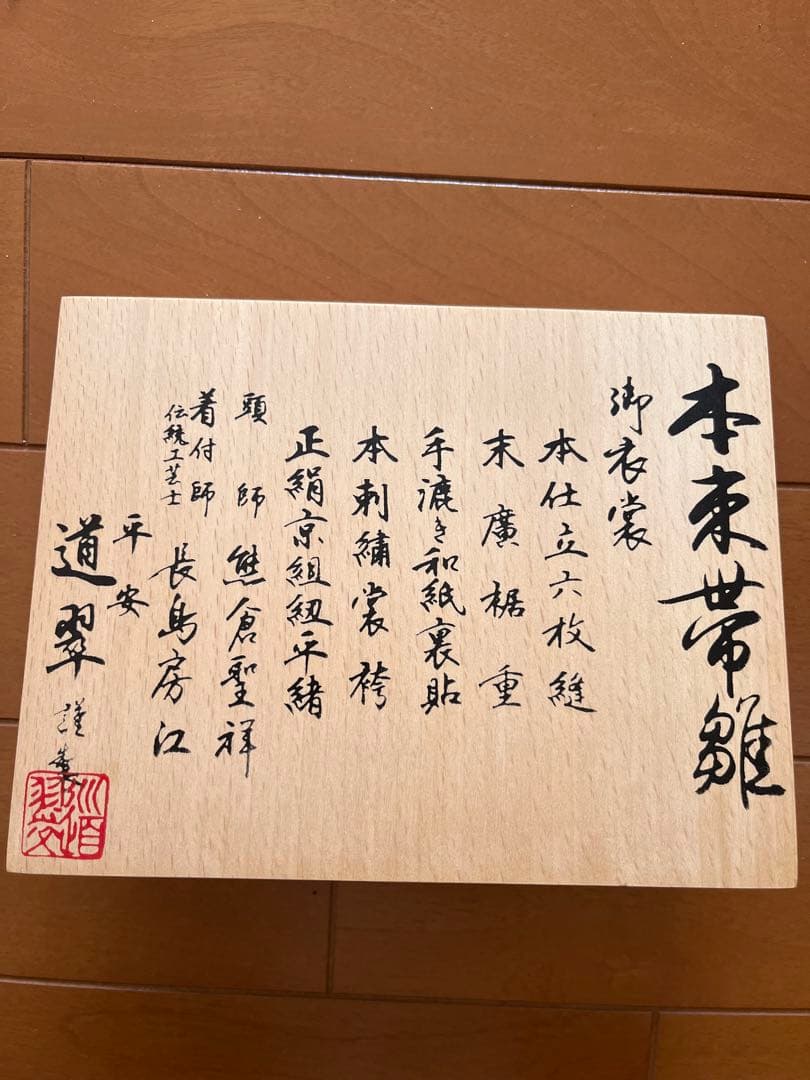 本束帯雛
御衣裳
本仕立六枚縫
末廣裾重
手漉き和紙裏貼
本刺繍裳袴
正絹京組紐平緒
頭師 熊倉聖祥
着付師
伝統工芸士
長島房江
平安
道翠 謹製